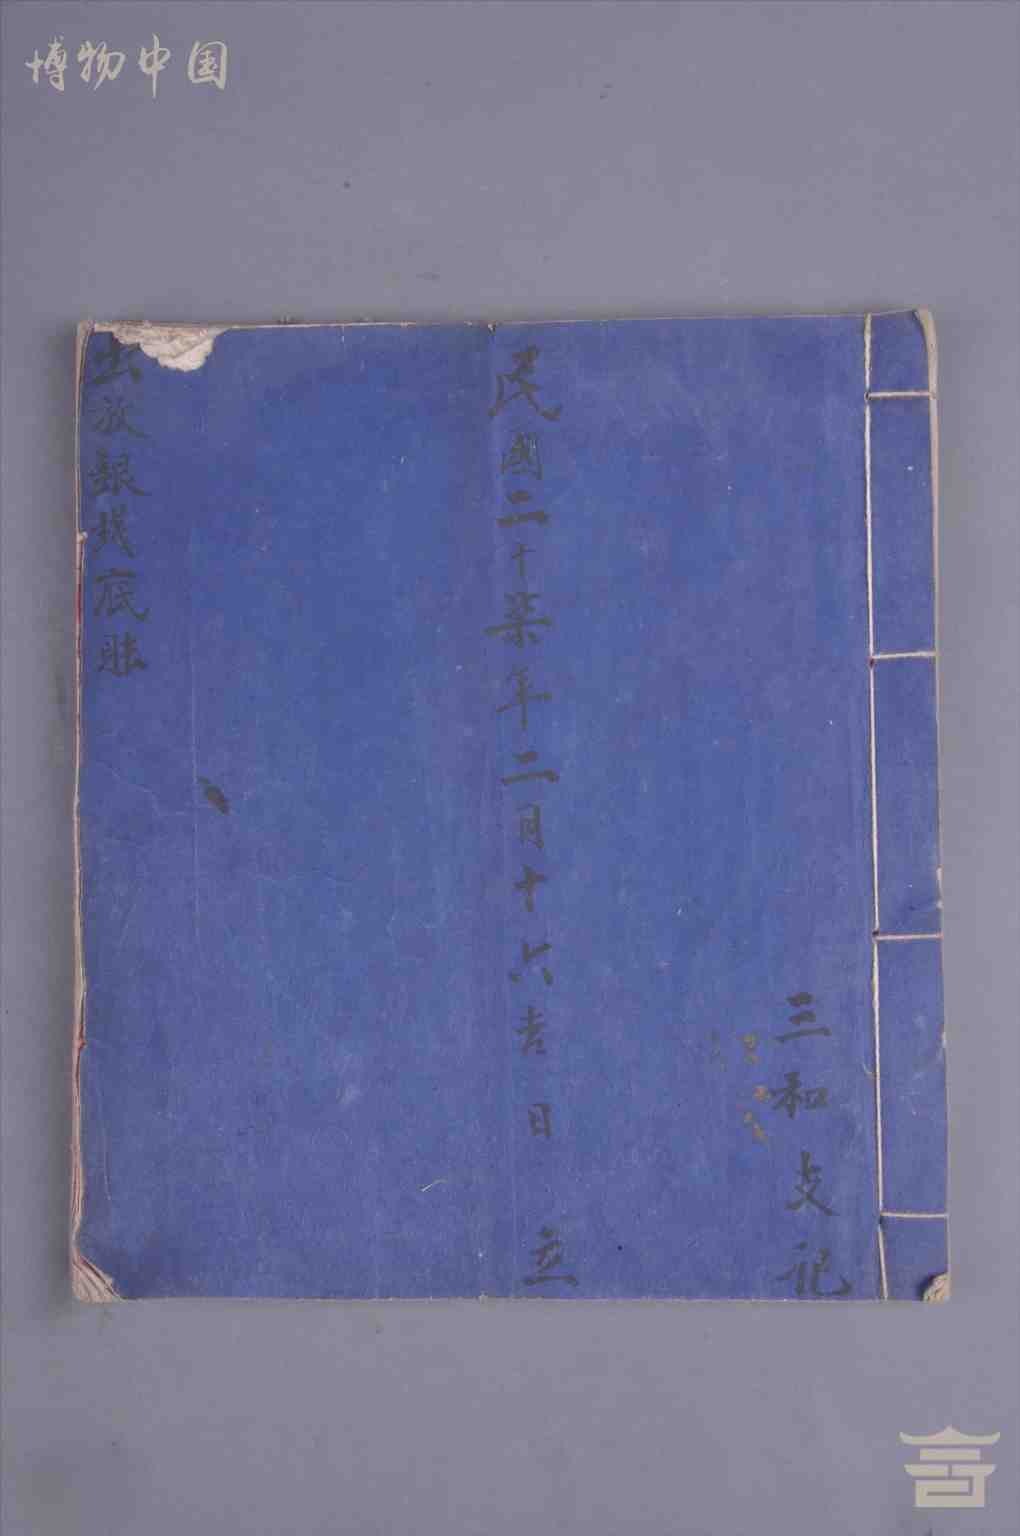 博物中国
三和支記
民國二十柒年二月十六吉日立
出放銀錢底賬